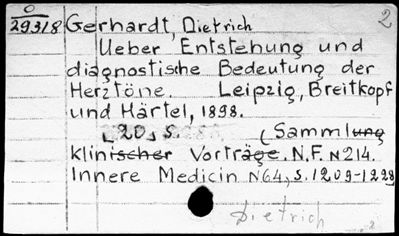 0
29318 Gerhardt, Dietrich 2
Ueber Entstehung und
diagnostische Bedeutung der
Herztöne. Leipzig, Breitkopf
und Härtel, 1898.
20, S. (Sammlung
klinischer Vorträge. N.F. N214.
Innere Medicin N64, S. 1209-1228
Dietrich